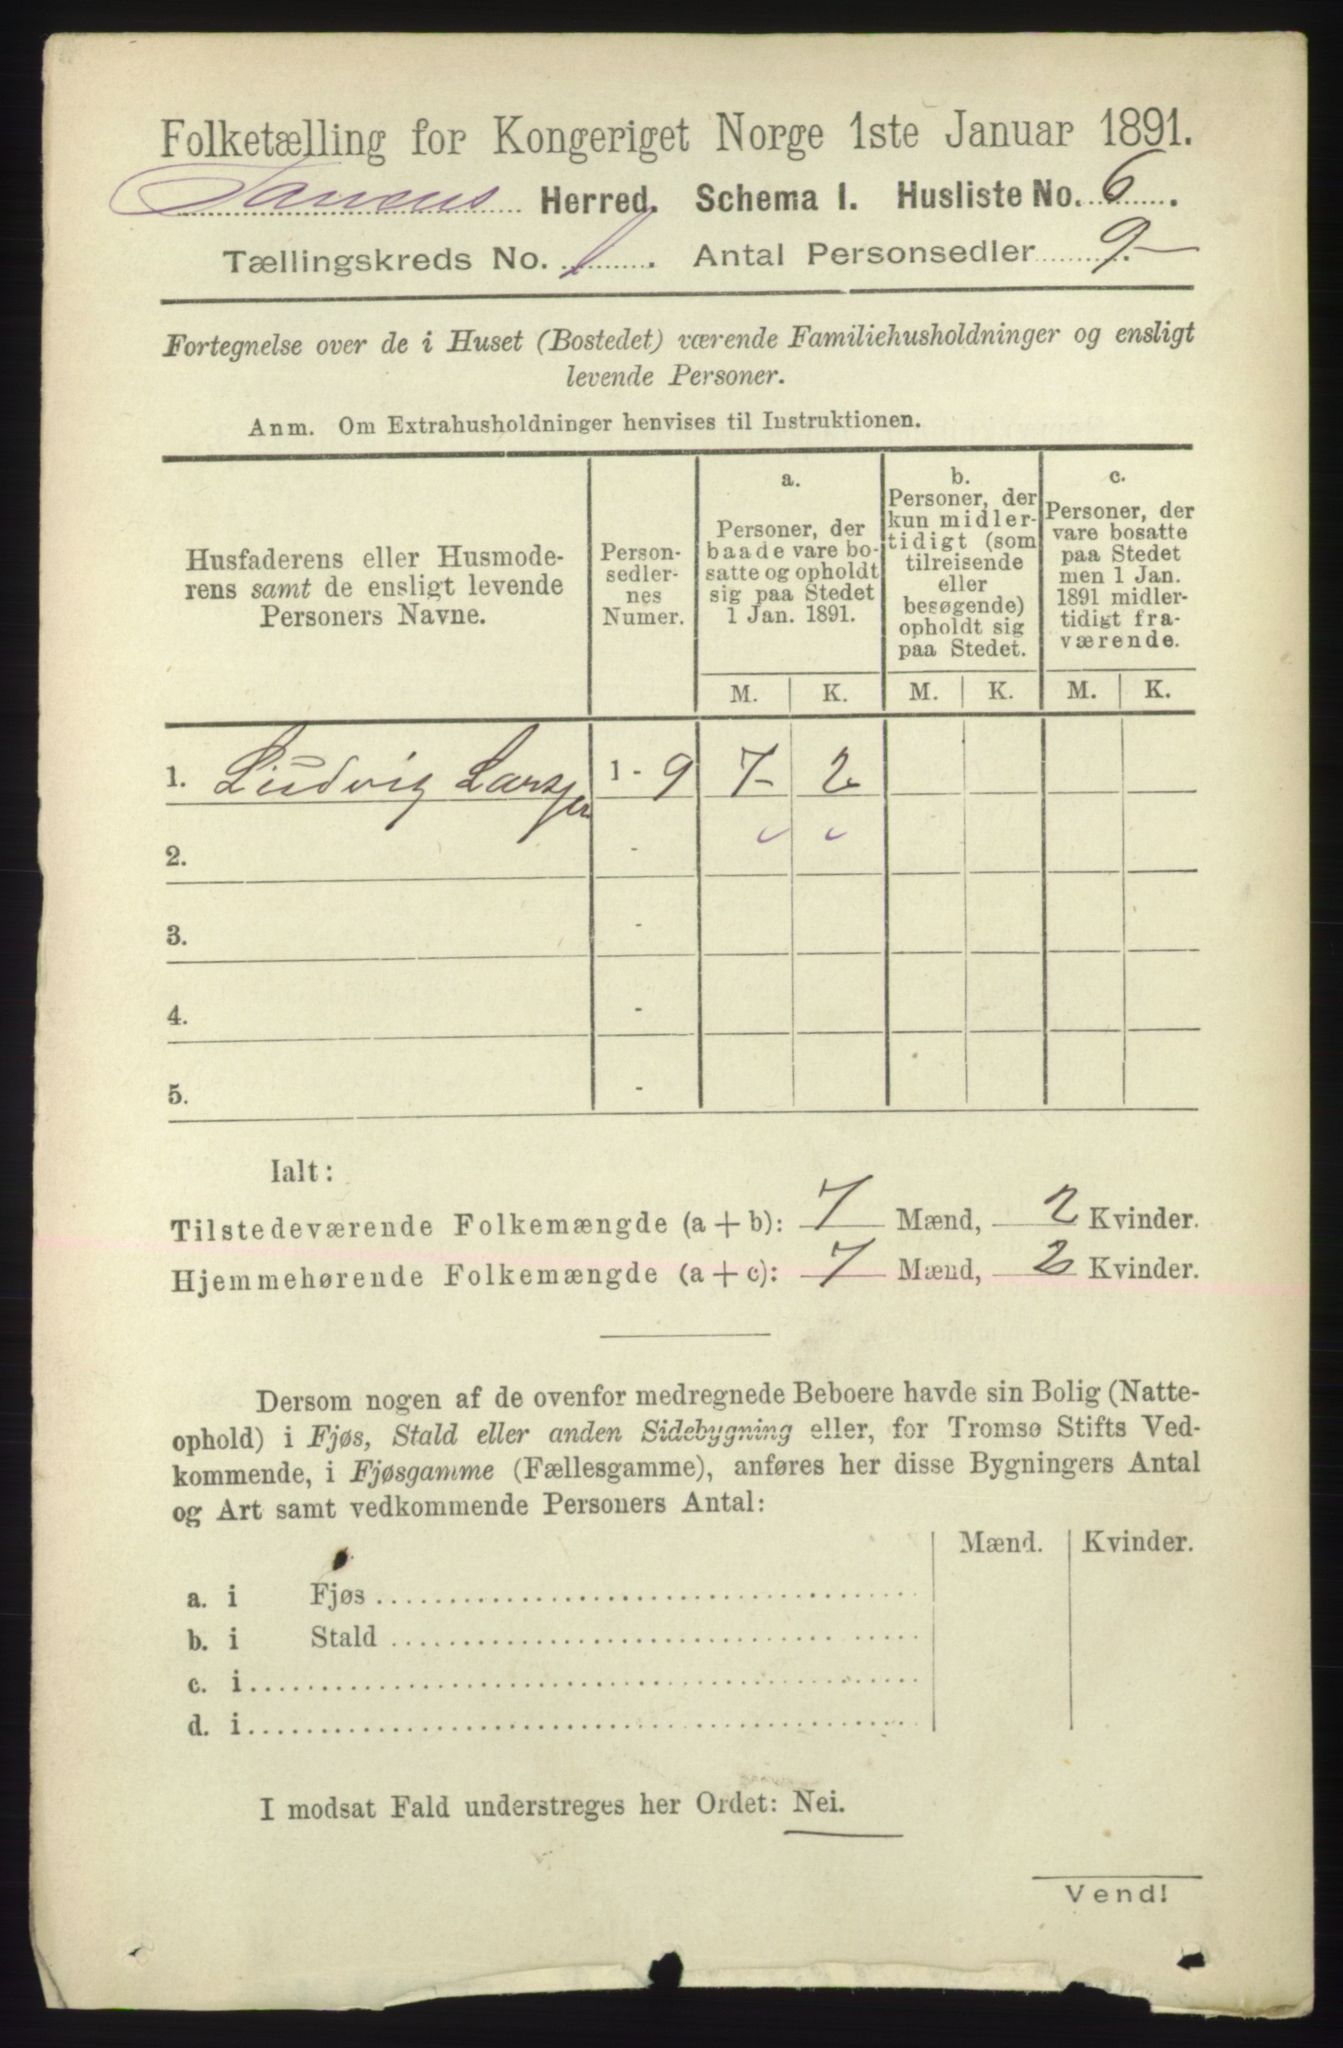 Folketælling for Kongeriget Norge 1ste Januar 1891.
Tanens Herred. Schema I. Husliste No. 6.
Tællingskreds No. 1. Antal Personsedler 9.
Fortegnelse over de i Huset (Bostedet) værende Familiehusholdninger og ensligt
levende Personer.
Anm. Om Extrahusholdninger henvises til Instruktionen.
Husfaderens eller Husmode-
rens samt de ensligt levende
Personers Navne.
Person-
sedler-
nes
Numer.
a.
Personer, der
baade vare bo-
satte og opholdt
sig paa Stedet
1 Jan. 1891.
b.
Personer, der
kun midler-
tidigt (som
tilreisende
eller
besøgende)
opholdt sig
paa Stedet.
c.
Personer, der
vare bosatte
paa Stedet
men 1 Jan.
1891 midler-
tidigt fra-
værende.
M. K. M. K. M. K.
1. Ludvig Larsen 1 - 9 7 2
2. -
3. -
4. -
5. -
Ialt:
Tilstedeværende Folkemængde (a + b): 7 Mænd, 2 Kvinder.
Hjemmehørende Folkemængde (a + c): 7 Mænd, 2 Kvinder.
Dersom nogen af de ovenfor medregnede Beboere havde sin Bolig (Natte-
ophold) i Fjøs, Stald eller anden Sidebygning eller, for Tromsø Stifts Ved-
kommende, i Fjøsgamme (Fællesgamme), anføres her disse Bygningers Antal
og Art samt vedkommende Personers Antal:
Mænd. Kvinder.
a. i Fjøs
b. i Stald
c. i
d. i
I modsat Fald understreges her Ordet: Nei.
Vend!